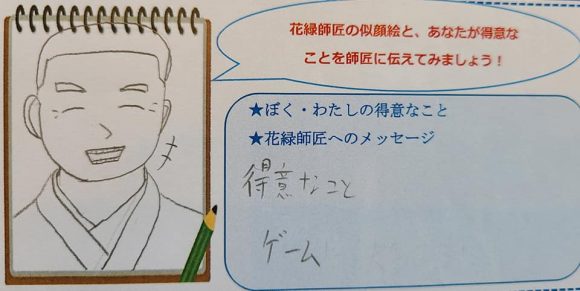 花緑師匠の似顔絵と、あなたが得意な
ことを師匠に伝えてみましょう！
★ぼく・わたしの得意なこと
★花緑師匠へのメッセージ
得意なこと
ゲーム